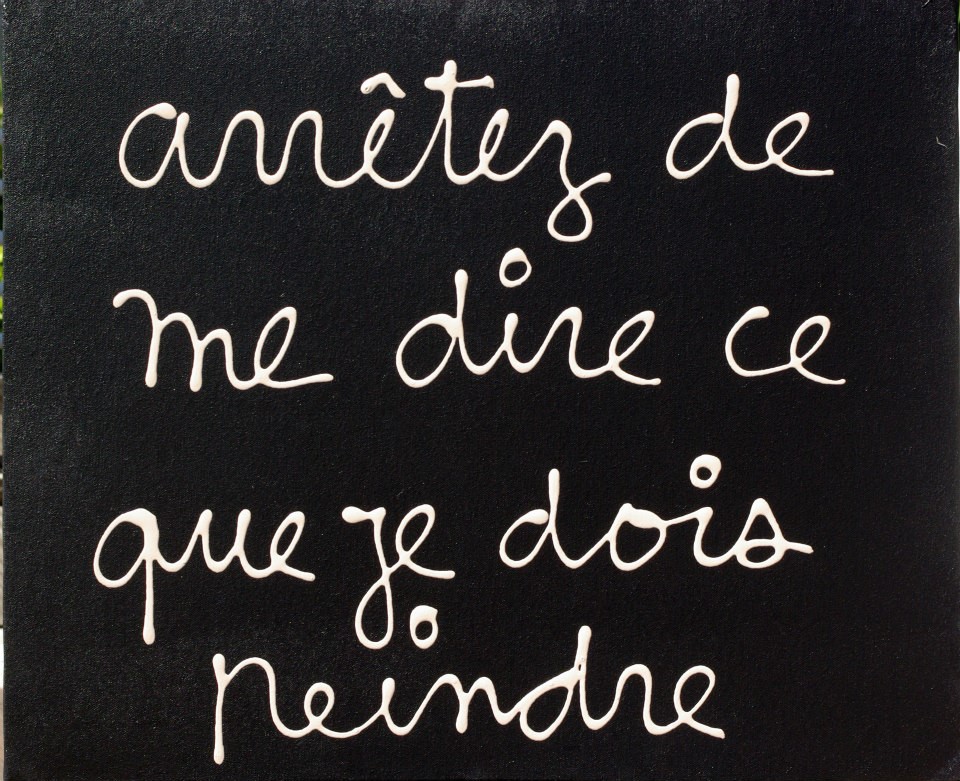 arrêtez de
me dire ce
que je dois
peindre